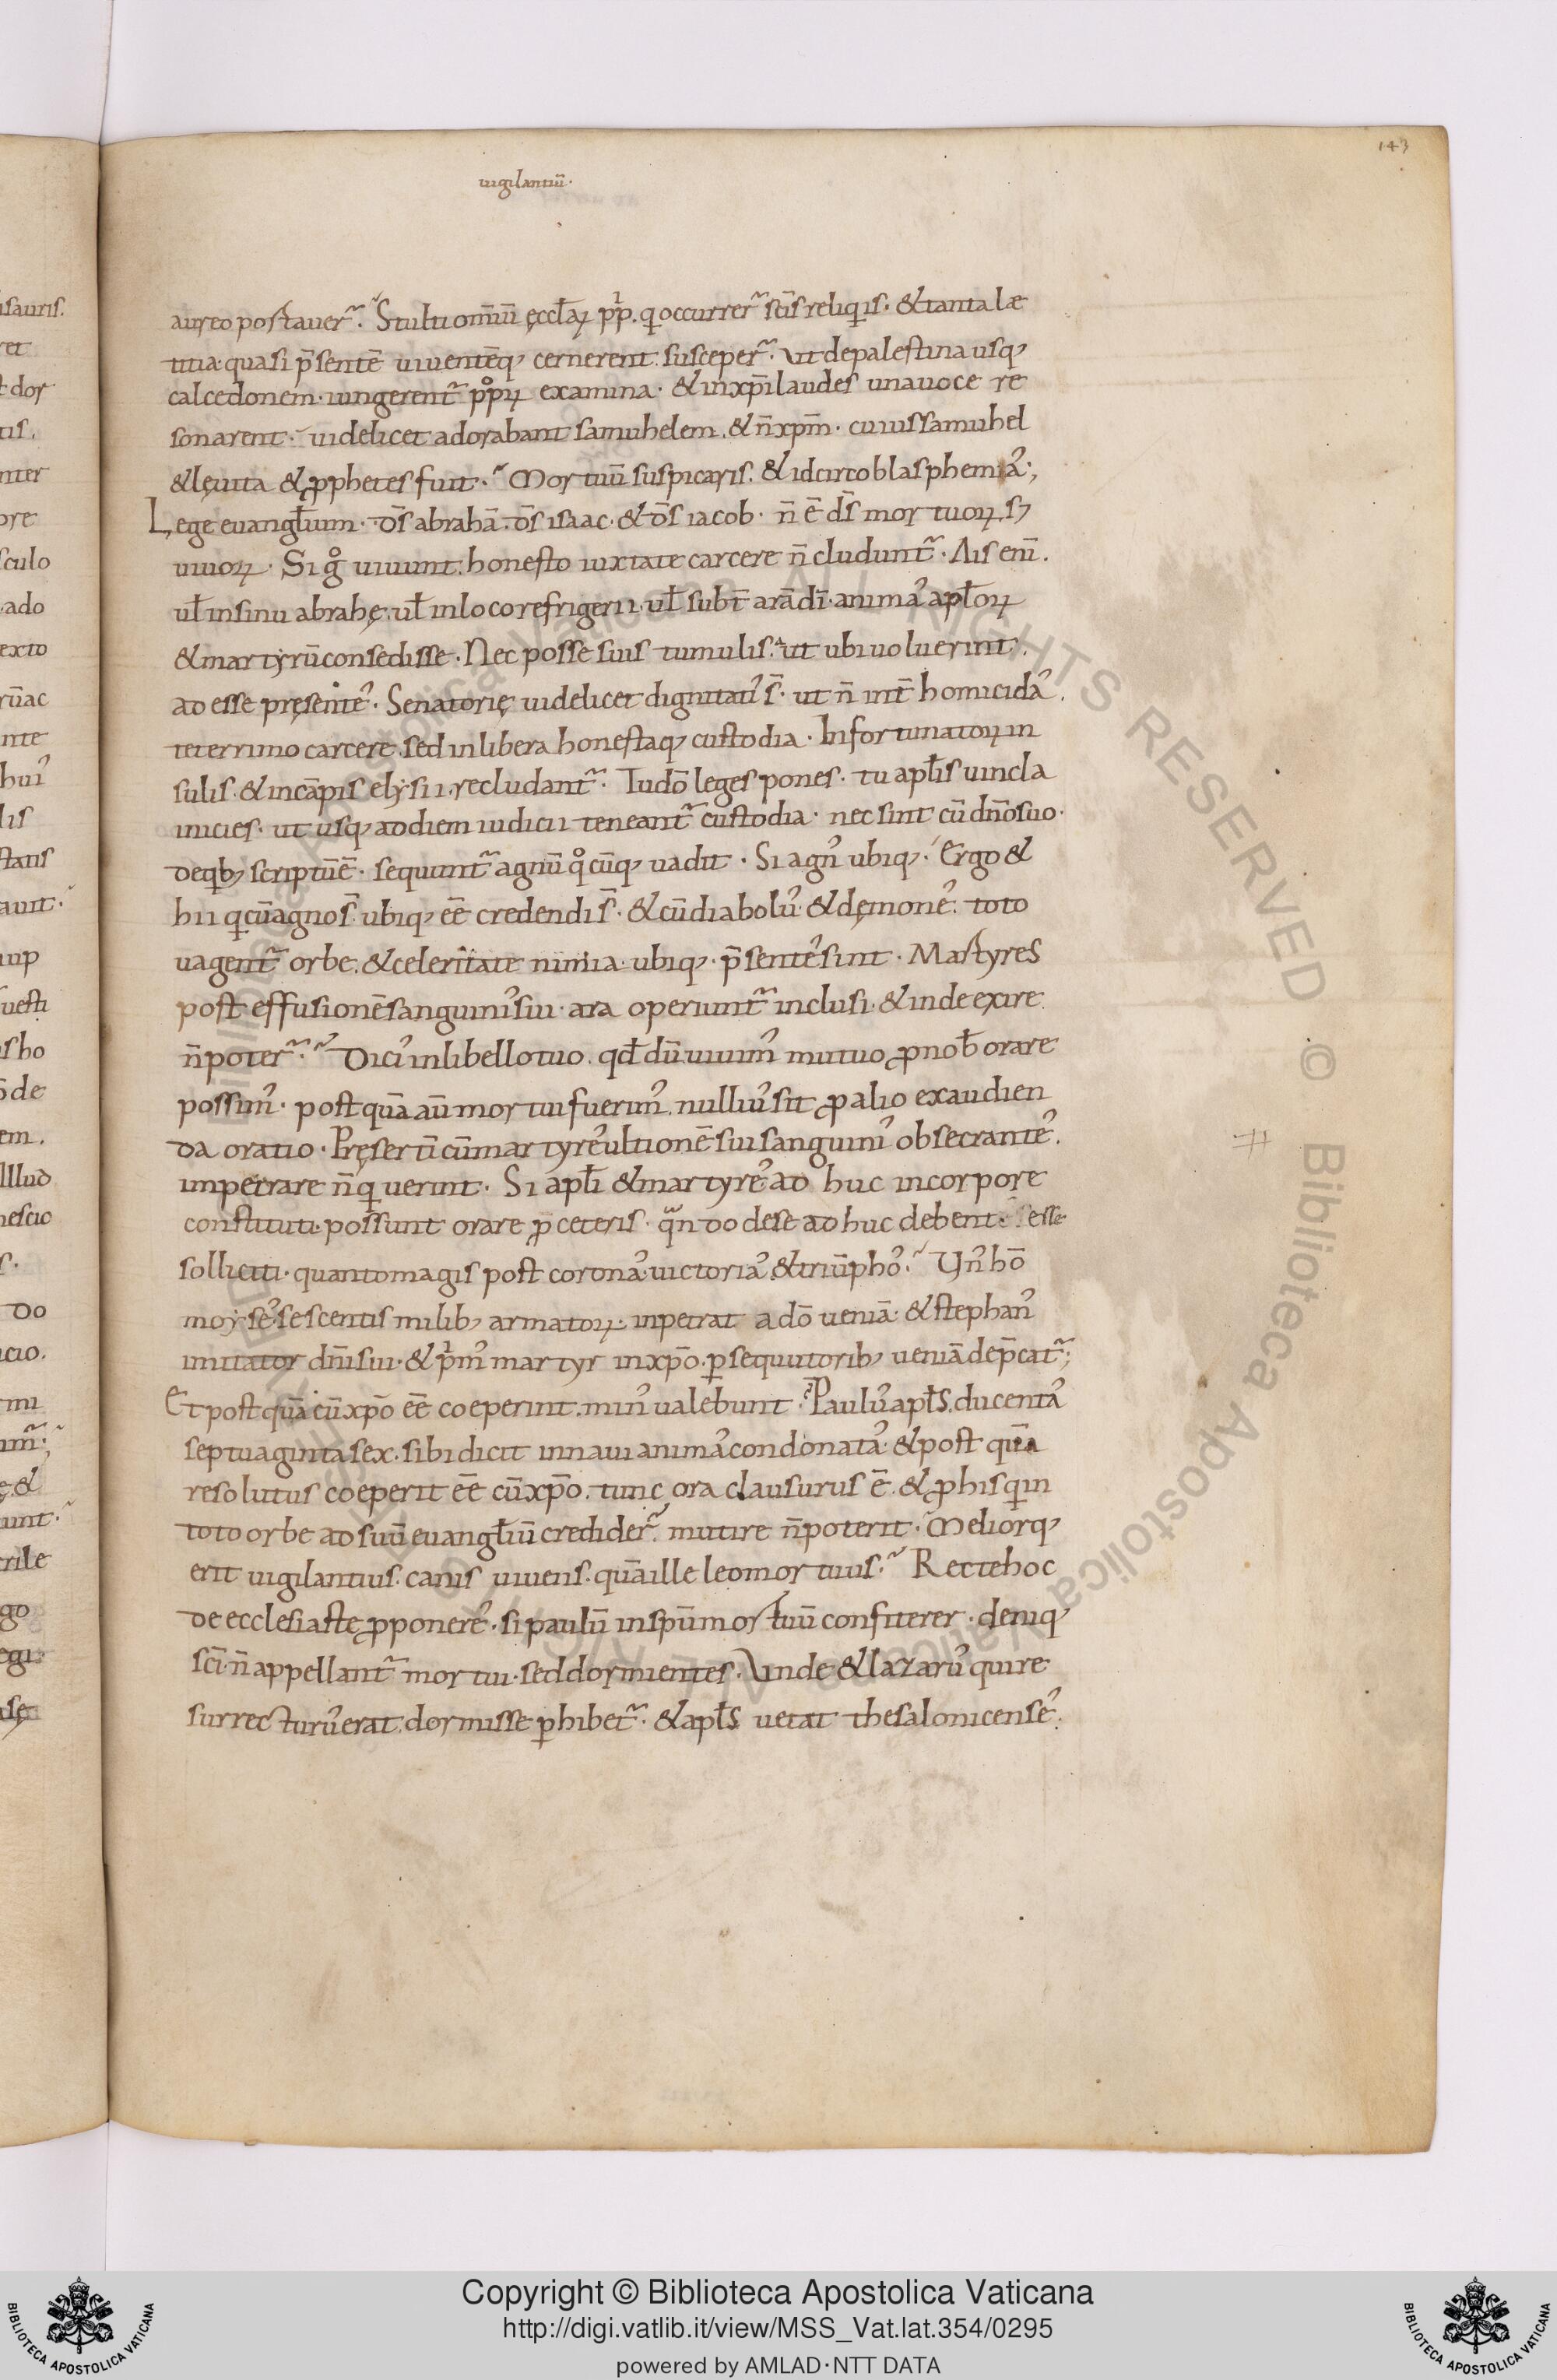 143
uigilantiū·
aureo portauer᷑. Stulti omīū ęccłaꝝ ppͥ. qͥ occurrer᷑ sc̄is reliqͥis· & tanta læ
titia· quasi p̄sentē uiuentēq; cernerent. susceper᷑. ut de palestina usq;
calcedonem· iungerent᷑ ppͦꝝ examina· & in xp̄i laudes una uoce re
sonarent· uidelicet adorabant samuhelem. & n̄ xp̄m· cuius samuhel
& lęuita & ꝓphetes fuit· Mortuū suspicaris. & idcirco blasphemaˀ;
Lege euangłium· d̄s abrahā. d̄s isaac· & d̄s iacob· n̄ ē d̄s mortuoꝝ. s;
uiuoꝝ· Si gͦ uiuunt. honesto iuxta te carcere n̄ cludunt᷑· Ais enī.
uł in sinu abrahę. uł in loco refrigerii· uł subt̄ arā dī· animaˀ apłoꝝ
& martyrū consedisse· Nec posse suis tumulis. ut ubi uoluerint.
ad esse pręsenteˀ· Senatorię uidelicet dignitatiˀ s̄· ut n̄ int̄ homicidaˀ.
teterrimo carcere. sed in libera honestaq; custodia· In fortunatoꝝ in
sulis· & in cāpis elysii. recludant᷑· Tu dō leges pones· tu apłis uincla
inicies· ut usq; ad diem iudicii teneant᷑ custodia· nec sint cū dn̄o suo·
de qͥb; scriptū ē· sequunt᷑ agnū qͦcūq; uadit· Si agnˀ ubiq;· Ergo &
hii qͥ cū agno s̄· ubiq; ēē credendi s̄· & cū diaboluˀ & dęmoneˀ. toto
uagent᷑ orbe. & celeritate nimia· ubiq;· p̄senteˀ sint· Martyres
post effusionē sanguiniˀ sui· ara operiunt᷑ inclusi· & inde exire
n̄ poter᷑· Diciˀ in libello tuo. qd̄ dū uiuimˀ mutuo ꝓ nob̄ orare
possimˀ· postquā aū mortui fuerimˀ. nulliuˀ sit ꝓ alio exaudien
da oratio· Pręsertī cū martyreˀ ultionē sui sanguiniˀ obsecranteˀ.
impetrare n̄ qͥuerint· Si apłi & martyreˀ ad huc in corpore
constituti· possunt orare ꝓ ceteris· qᷓndo de se ad huc debent· esse
solliciti· quanto magis post coronaˀ· uictoriaˀ. & triūphoˀ· Unˀ hō
moyseˀ. sescentis milib; armatoꝝ· inpetrat a dō ueniā· & stephanˀ
imitator dn̄i sui· & pͥmˀ martyr in xp̄o. ꝑsequutorib; ueniā dep̄cat᷑;
Et postquā cū xp̄o ēē coeperint. minˀ ualebunt· Pauluˀ apłs. ducentaˀ
septuaginta sex. sibi dicit in naui animaˀ condonataˀ· & post quā
resolutus coeperit ēē cū xp̄o. tunc ora clausurus ē· & ꝓ his qͥ in
toto orbe ad suū euangłiū credider᷑. mutire n̄ poterit· Meliorq;
erit uigilantius. canis uiuens. quā ille leo mortuus· Recte hoc
de ecclesiastę ꝓponereˀ· si paulū in sp̄u mortuū confiterer· deniq;
sc̄i n̄ appellant᷑ mortui· sed dormientes. Unde & lazaruˀ qui re
surrecturuˀ erat. dormisse ꝑhibet᷑· & apłs uetat thesalonicenseˀ.
isauris.
dor
tis.
nter
ore
sculo
ado
exto
rūac
nte
huiˀ
lis
statis
auit·
uup
uesti
sho
de
em.
lllud
nescio
s.
do
cio.
mi
& 
unt·
rile
go
egi
Copyright © Biblioteca Apostolica Vaticana
http://digi.vatlib.it/view/MSS_Vat.lat.354/0295
powered by AMLAD·NTT DATA
BIBLIOTECA APOSTOLICA VATICANA
BIBLIOTECA APOSTOLICA VATICANA